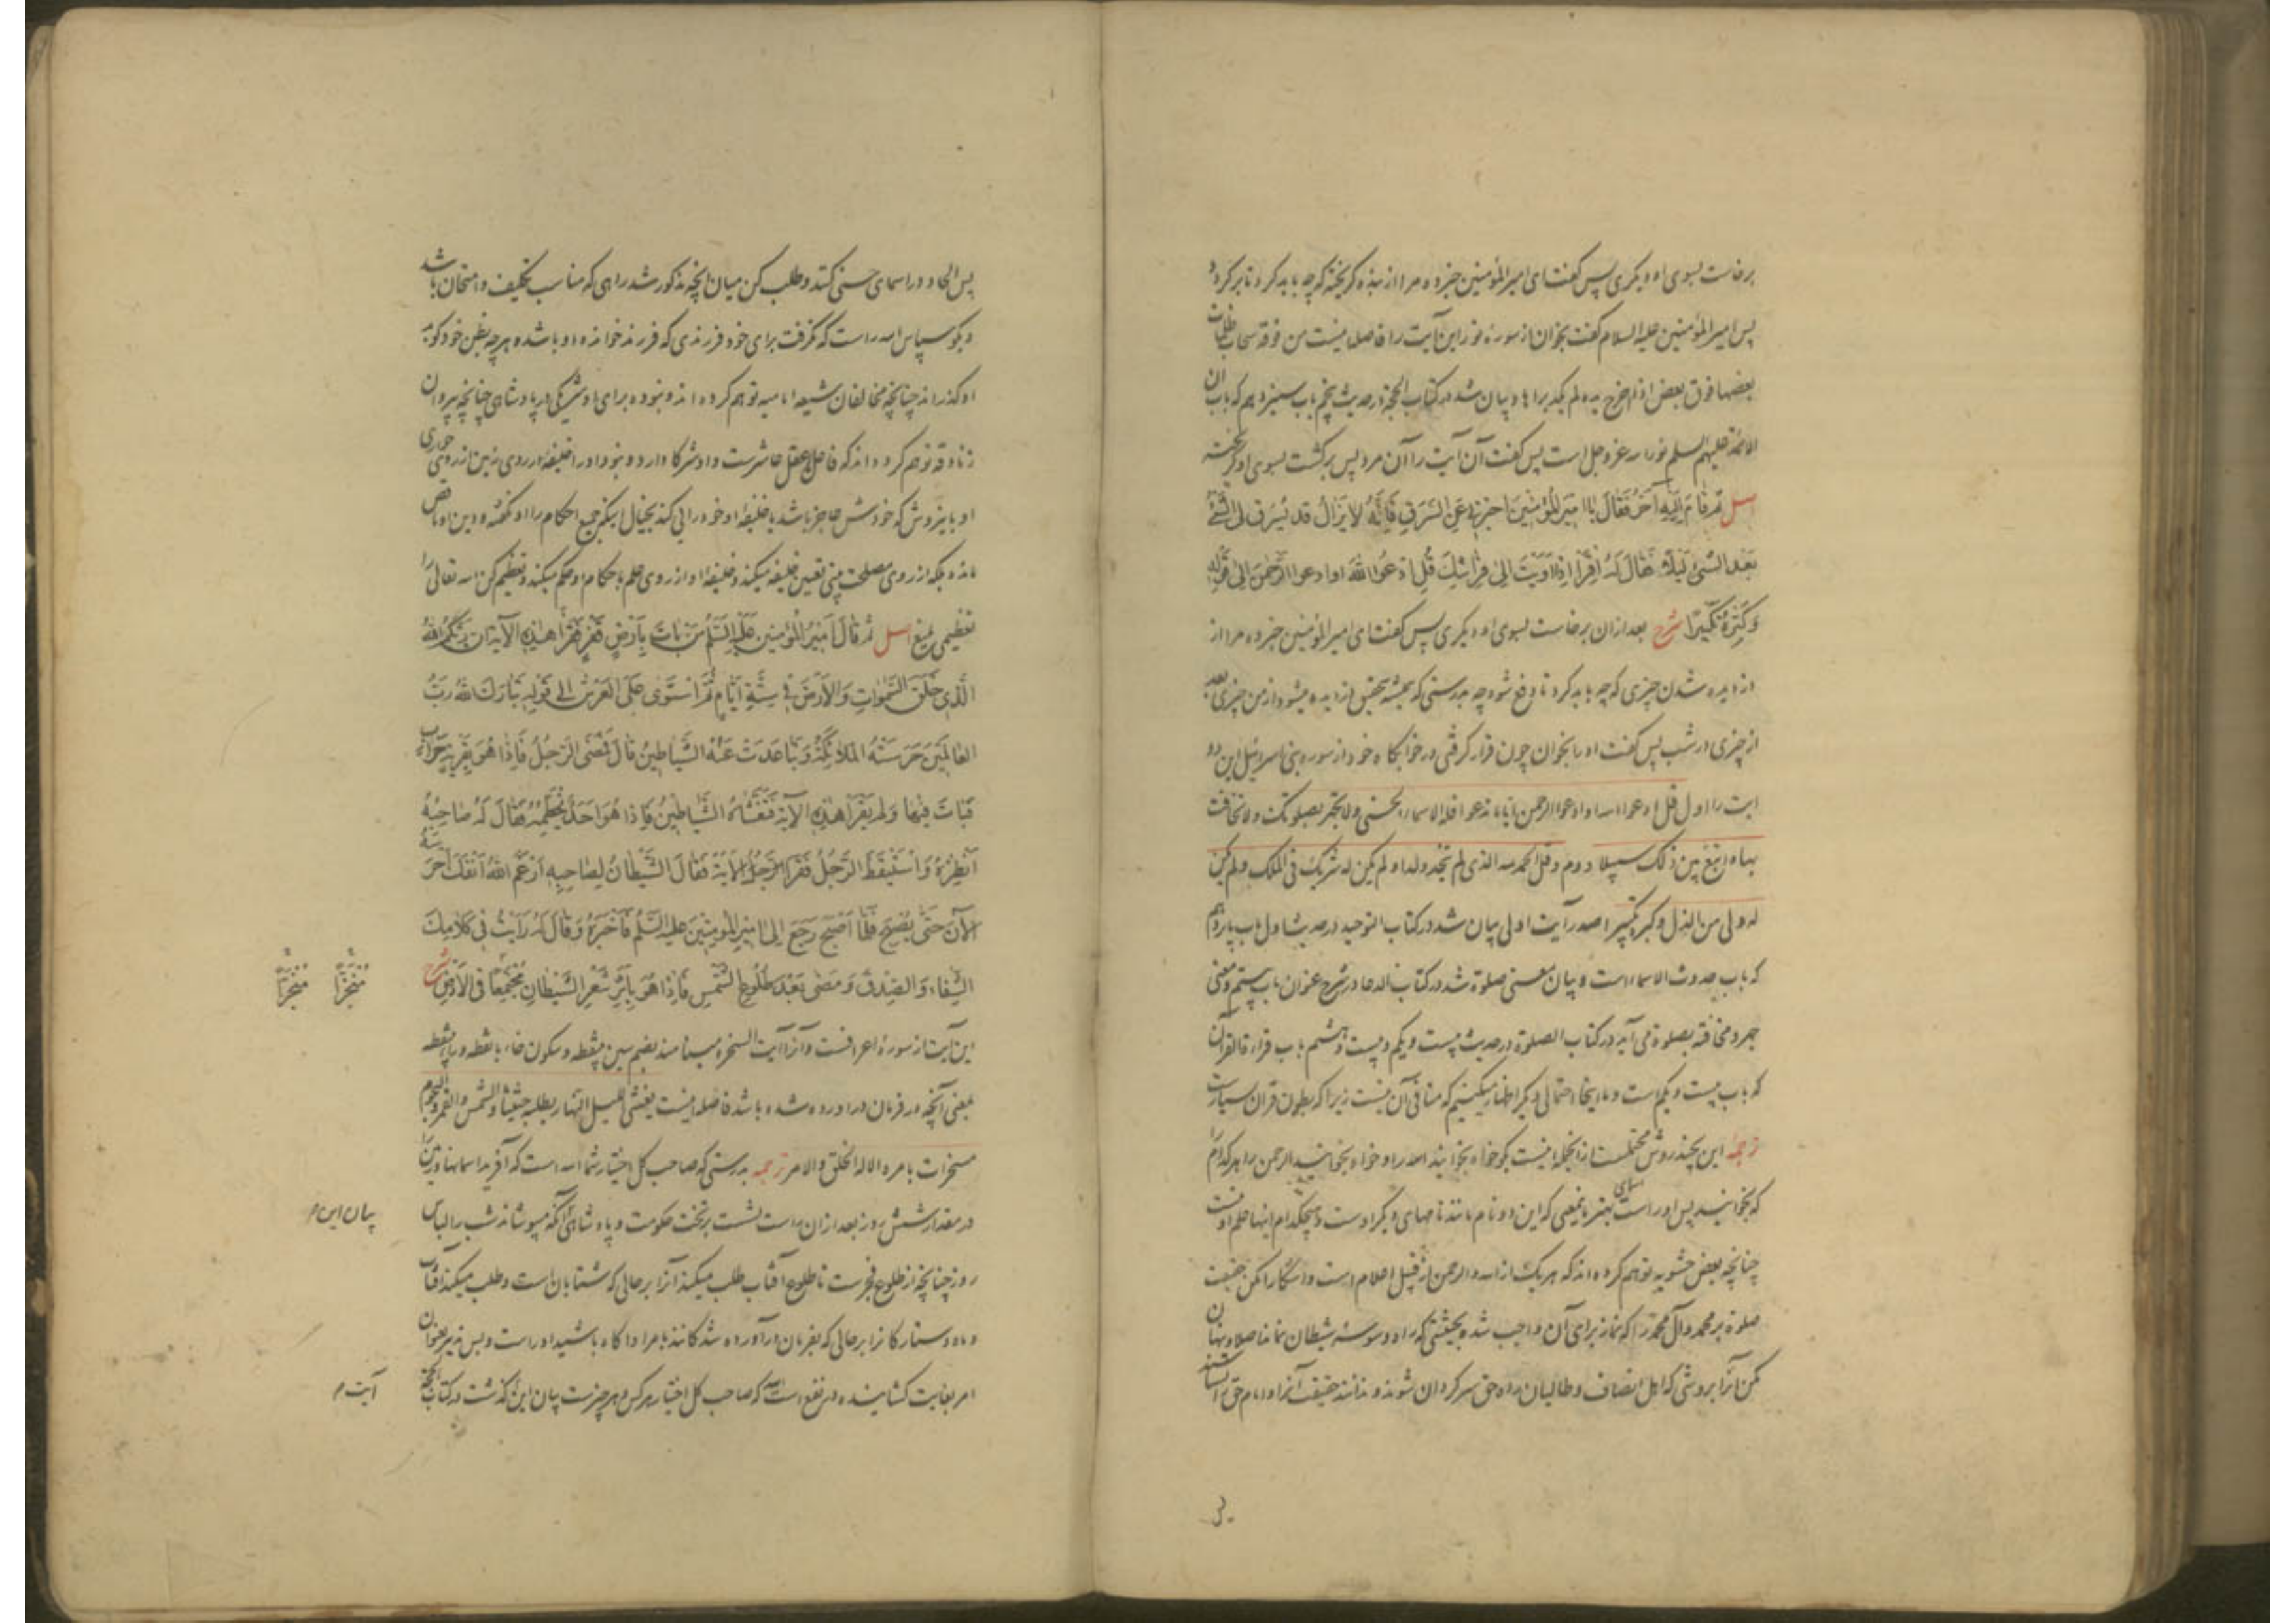 برخاست بسوی او دیگری پس گفت ای امیرالمؤمنین خبر ده مرا از بنده گریخته که چه باید کرد تا برگردد
پس امیرالمؤمنین علیه السلام گفت بخوان از سوره نور این آیت را فاصله نیست من فوقه سحاب ظلمات
بعضها فوق بعض اذا اخرج یده لم یکد یراها و بیان شد در کتاب الحجة در حدیث پنجم باب سیزدهم که باب ان
الائمة علیهم السلم نور الله عزوجل است پس گفت آن آیت را آن مرد پس برگشت بسوی او گریخته
اصل ثُمَّ قَامَ اِلَیْهِ آخَرُ فَقَالَ یَا اَمِیرَ الْمُؤْمِنِینَ اَخْبِرْنِی عَنِ السَّرَقِ فَاِنَّهُ لَا یَزَالُ قَد یُسْرَقُ لِیَ الشَّیْءُ
بَعْدَ الشَّیْءِ لَیْلًا فَقَالَ لَهُ اقْرَأْ اِذَا اَوَیْتَ اِلٰی فِرَاشِكَ قُلِ ادْعُوا اللهَ اَوِ ادْعُوا الرَّحْمٰنَ اِلٰی قَوْلِهِ
وَ كَبِّرْهُ تَكْبِیرًا شرح بعد از آن برخاست بسوی او دیگری پس گفت ای امیرالمؤمنین خبر ده مرا از
دزدیده شدن چیزی که چه باید کرد تا دفع شود چه بدرستی که همیشه بتحقیق دزدیده میشود از من چیزی بعد
از چیزی در شب پس گفت او را بخوان چون قرار گرفتی در خوابگاه خود از سوره بنی اسرائیل این دو
ایت را اول قل ادعوا الله او ادعوا الرحمن ایاما تدعوا فله الاسماء الحسنی ولا تجهر بصلوتک ولا تخافت
بها و ابتغ بین ذلک سبیلا دوم و قل الحمد لله الذی لم یتخذ ولدا و لم یکن له شریک فی الملک و لم یکن
له ولی من الذل و کبره تکبیرا صدر آیت اولی بیان شد در کتاب التوحید در حدیث اول باب پازدهم
که باب حدوث الاسماء است و بیان معنی صلوة شد در کتاب الدعا در شرح عنوان باب بیستم و معنی
جهر و مخافته بصلوة می آید در کتاب الصلوة در حدیث بیست و یکم و بیست و هشتم باب قراءة القرآن
که باب بیست و یکم است و ما اینجا احتمالی دیگر اظهار میکنیم که منافی آن نیست زیرا که بطون قرآن بسیارست
ترجمه این بچند روش محتملست از انجمله اینست بگو خواه بخوانید الله را و خواه بخوانید الرحمن را هر کدام را
که بخوانید پس او راست اسمای بهتر باینمعنی که این دو نام مانند نامهای دیگر اوست و هیچکدام اینها علم او نیست
چنانچه بعض حشویه توهم کرده اند که هر یک از الله و الرحمن از قبیل اعلام است و اشکارا مکن حقیقت
صلوة بر محمد و آل محمد را که نماز برای آن واجب شده بحیثیتی که راه وسوسه شیطان نماند اصلا و پنهان
مکن آنرا بروشی که اهل انصاف و طالبان راه حق سرگردان شوند و ندانند حقیقت آنرا و امام حق را نشناسند
پس الحاد در اسمای حسنی کنند و طلب کن میان انچه مذکور شد راهی که مناسب تکلیف و امتحان باشد
و بگو سپاس الله راست که نگرفت برای خود فرزندی که فرزند خوانده او باشد و هر چه بظن خود گوید
او کذراند چنانچه مخالفان شیعه امامیه توهم کرده اند و نبوده برای او شریکی در پادشاهی چنانچه پیروان
زنادقه توهم کرده اند که فاعل عقل عاشرست و او شرکا دارد و نبود او را خلیفه در روی زمین از روی خواری
او باینروش که خودش عاجز باشد یا خلیفه او خودرائی کند بخیال اینکه جمیع احکام را او نگفته و دین او ناقص
مانده بلکه از روی مصلحت بینی تعیین خلیفه میکند و خلیفه او از روی علم باحکام او حکم میکند و تعظیم کن الله تعالی را
تعظیمی بلیغ اصل ثُمَّ قَالَ اَمِیرُ الْمُؤْمِنِینَ عَلَیْهِ السَّلَمُ مَنْ بَاتَ بِاَرْضٍ قَفْرٍ فَقَرَأَ هٰذِهِ الْآیَةَ اِنَّ رَبَّكُمُ اللهُ
الَّذِی خَلَقَ السَّمٰوَاتِ وَالْاَرْضَ فِی سِتَّةِ اَیَّامٍ ثُمَّ اسْتَوٰی عَلَی الْعَرْشِ اِلٰی قَوْلِهِ تَبَارَكَ اللهُ رَبُّ
الْعَالَمِینَ حَرَسَتْهُ الْمَلَائِكَةُ وَ تَبَاعَدَتْ عَنْهُ الشَّیَاطِینُ قَالَ فَمَضَی الرَّجُلُ فَاِذَا هُوَ بِقَرْیَةٍ خَرَابٍ
فَبَاتَ فِیهَا وَ لَمْ یَقْرَأْ هٰذِهِ الْآیَةَ فَتَغَشَّاهُ الشَّیَاطِینُ فَاِذَا هُوَ اَخَذَ بِخَطْمِهِ فَقَالَ لَهُ صَاحِبُهُ
اَنْظِرْهُ وَ اسْتَیْقَظَ الرَّجُلُ فَقَرَأَ الرَّجُلُ الْآیَةَ فَقَالَ الشَّیْطَانُ لِصَاحِبِهِ اَرْغَمَ اللهُ اَنْفَكَ اُحْرُسْهُ
الْآنَ حَتّٰی یُصْبِحَ فَلَمَّا اَصْبَحَ رَجَعَ اِلٰی اَمِیرِ الْمُؤْمِنِینَ عَلَیْهِ السَّلَمُ فَاَخْبَرَهُ وَ قَالَ لَهُ رَاَیْتُ فِی كَلَامِكَ
الشِّفَاءَ وَالصِّدْقَ وَ مَضٰی بَعْدَ طُلُوعِ الشَّمْسِ فَاِذَا هُوَ بِاَثَرِ شَعْرِ الشَّیْطَانِ مُجْتَمِعًا فِی الْاَرْضِ شرح
این آیت از سوره اعرافست و آنرا آیت السخره مینامند بضم سین بینقطه و سکون خاء بانقطه و راء بینقطه
بمعنی آنچه در فرمان دراورده شده باشد فاصله اینست یغشی اللیل النهار یطلبه حثیثا والشمس والقمر والنجوم
مسخرات بامره الا له الخلق والامر ترجمه بدرستی که صاحب کل اختیار شما الله است که آفرید اسمانها و زمین را
در مقدار شش روز بعد از ان راست نشست بر تخت حکومت و پادشاهی آنکه میپوشاند شب را لباس
بیان این م
روز چنانچه از طلوع فجرست تا طلوع آفتاب طلب میکند آنرا بر حالی که شتابان است و طلب میکند آفتاب
و ماه و ستارگان را بر حالی که بفرمان درآورده شدگانند بامر او آگاه باشید او راست و بس تدبیر بعنوان
امر بغایت گشاینده در نفع است الله که صاحب کل اختیار هر کس و هر چیزست بیان این گذشت در کتاب الحجة
آیت م